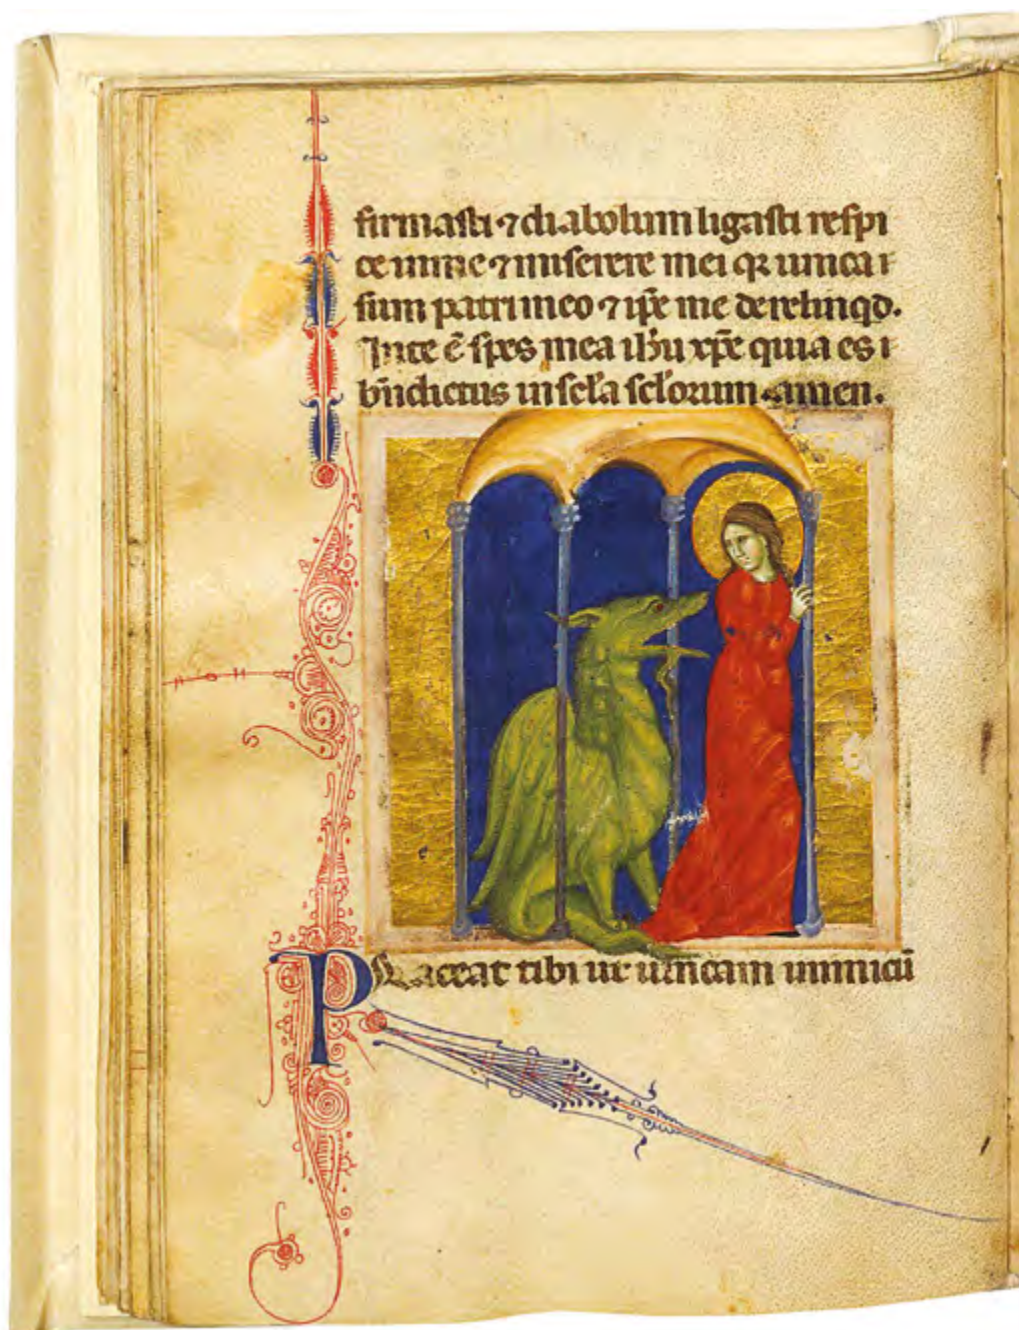 firmasti ⁊ diabolum ligasti respi
ce in me ⁊ miserere mei qꝛ unica
sum patri meo ⁊ ip̄e me derelinqd.
In te ē spes mea ih̄u xp̄e quia es
bn̄dictus in scl̄a scl̄orum. amen.
Placeat tibi ut uincam inimicū